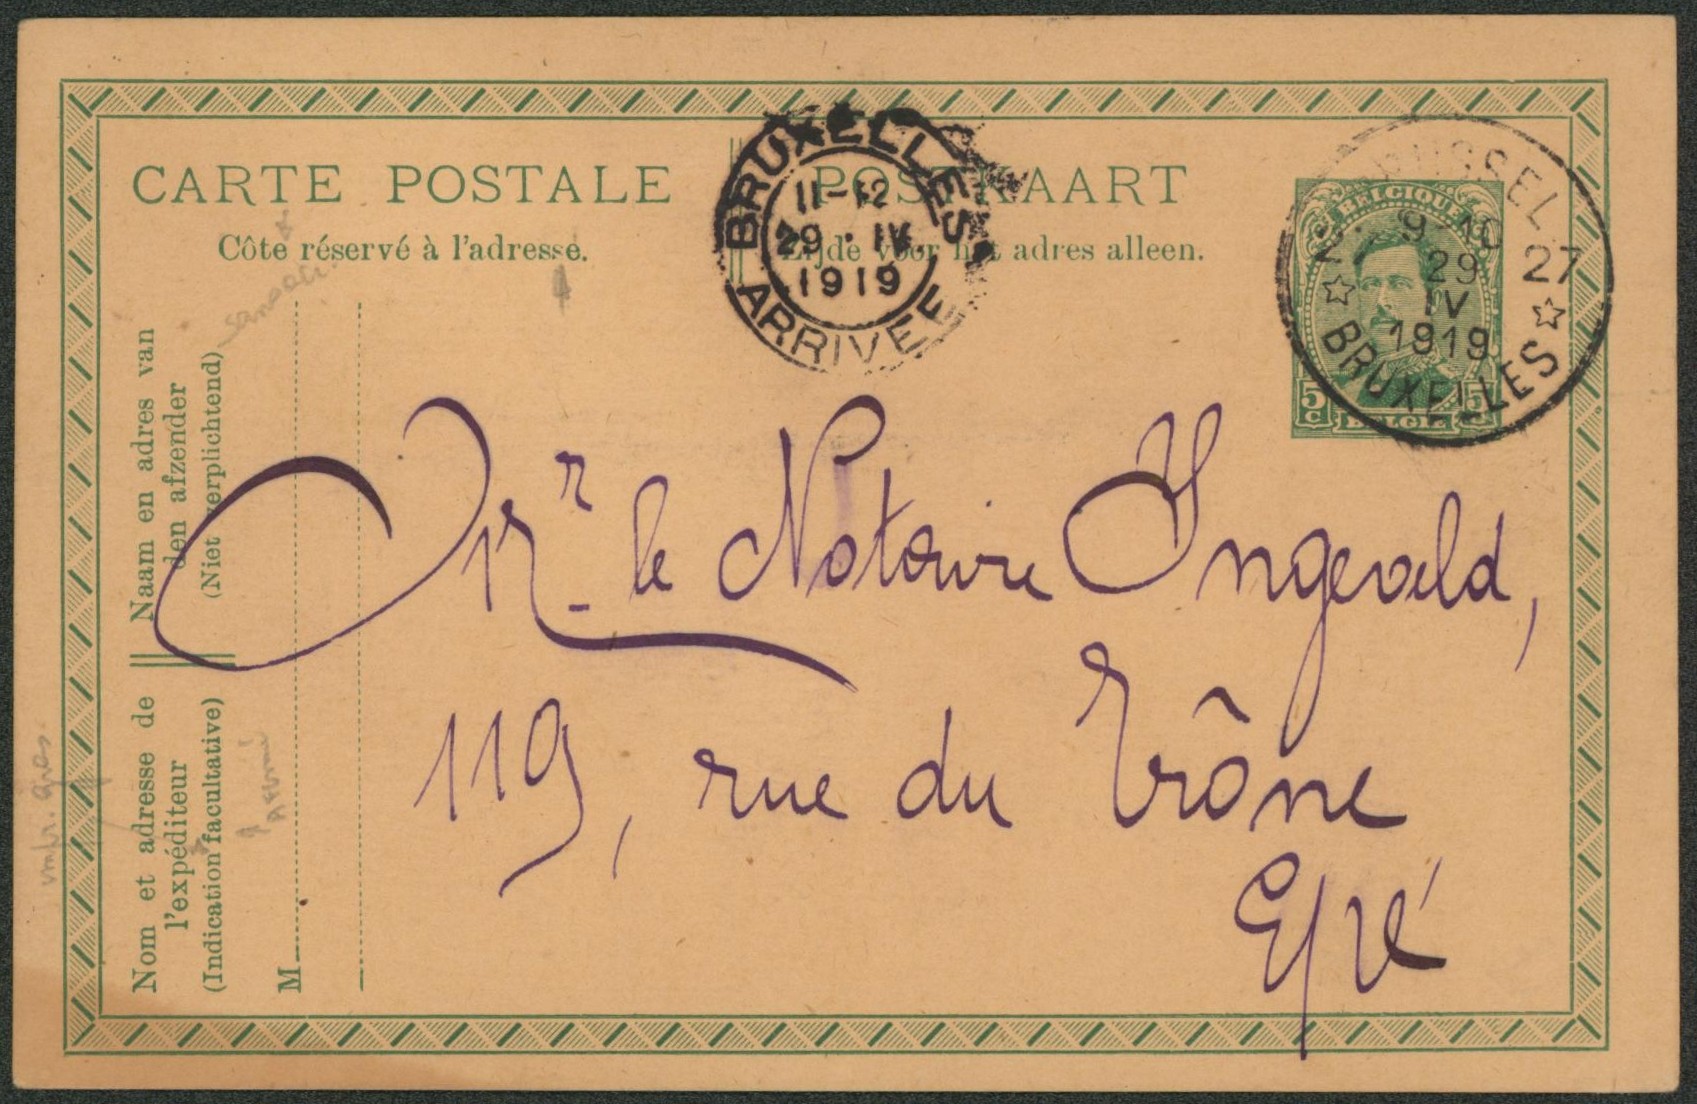 CARTE POSTALE
Côte réservé à l'adresse.
POSTKAART
Zijde voor het adres alleen.
BRUXELLES
11-12
29 · IV
1919
ARRIVÉE
BRUSSEL
27 27
9-10
29
IV
1919
BRUXELLES
BELGIQUE
5 c 5 c
BELGIË
Naam en adres van
den afzender
(Niet verplichtend)
Nom et adresse de
l'expéditeur
(Indication facultative)
M
Mr. le Notaire Ingeveld,
119, rue du Trône